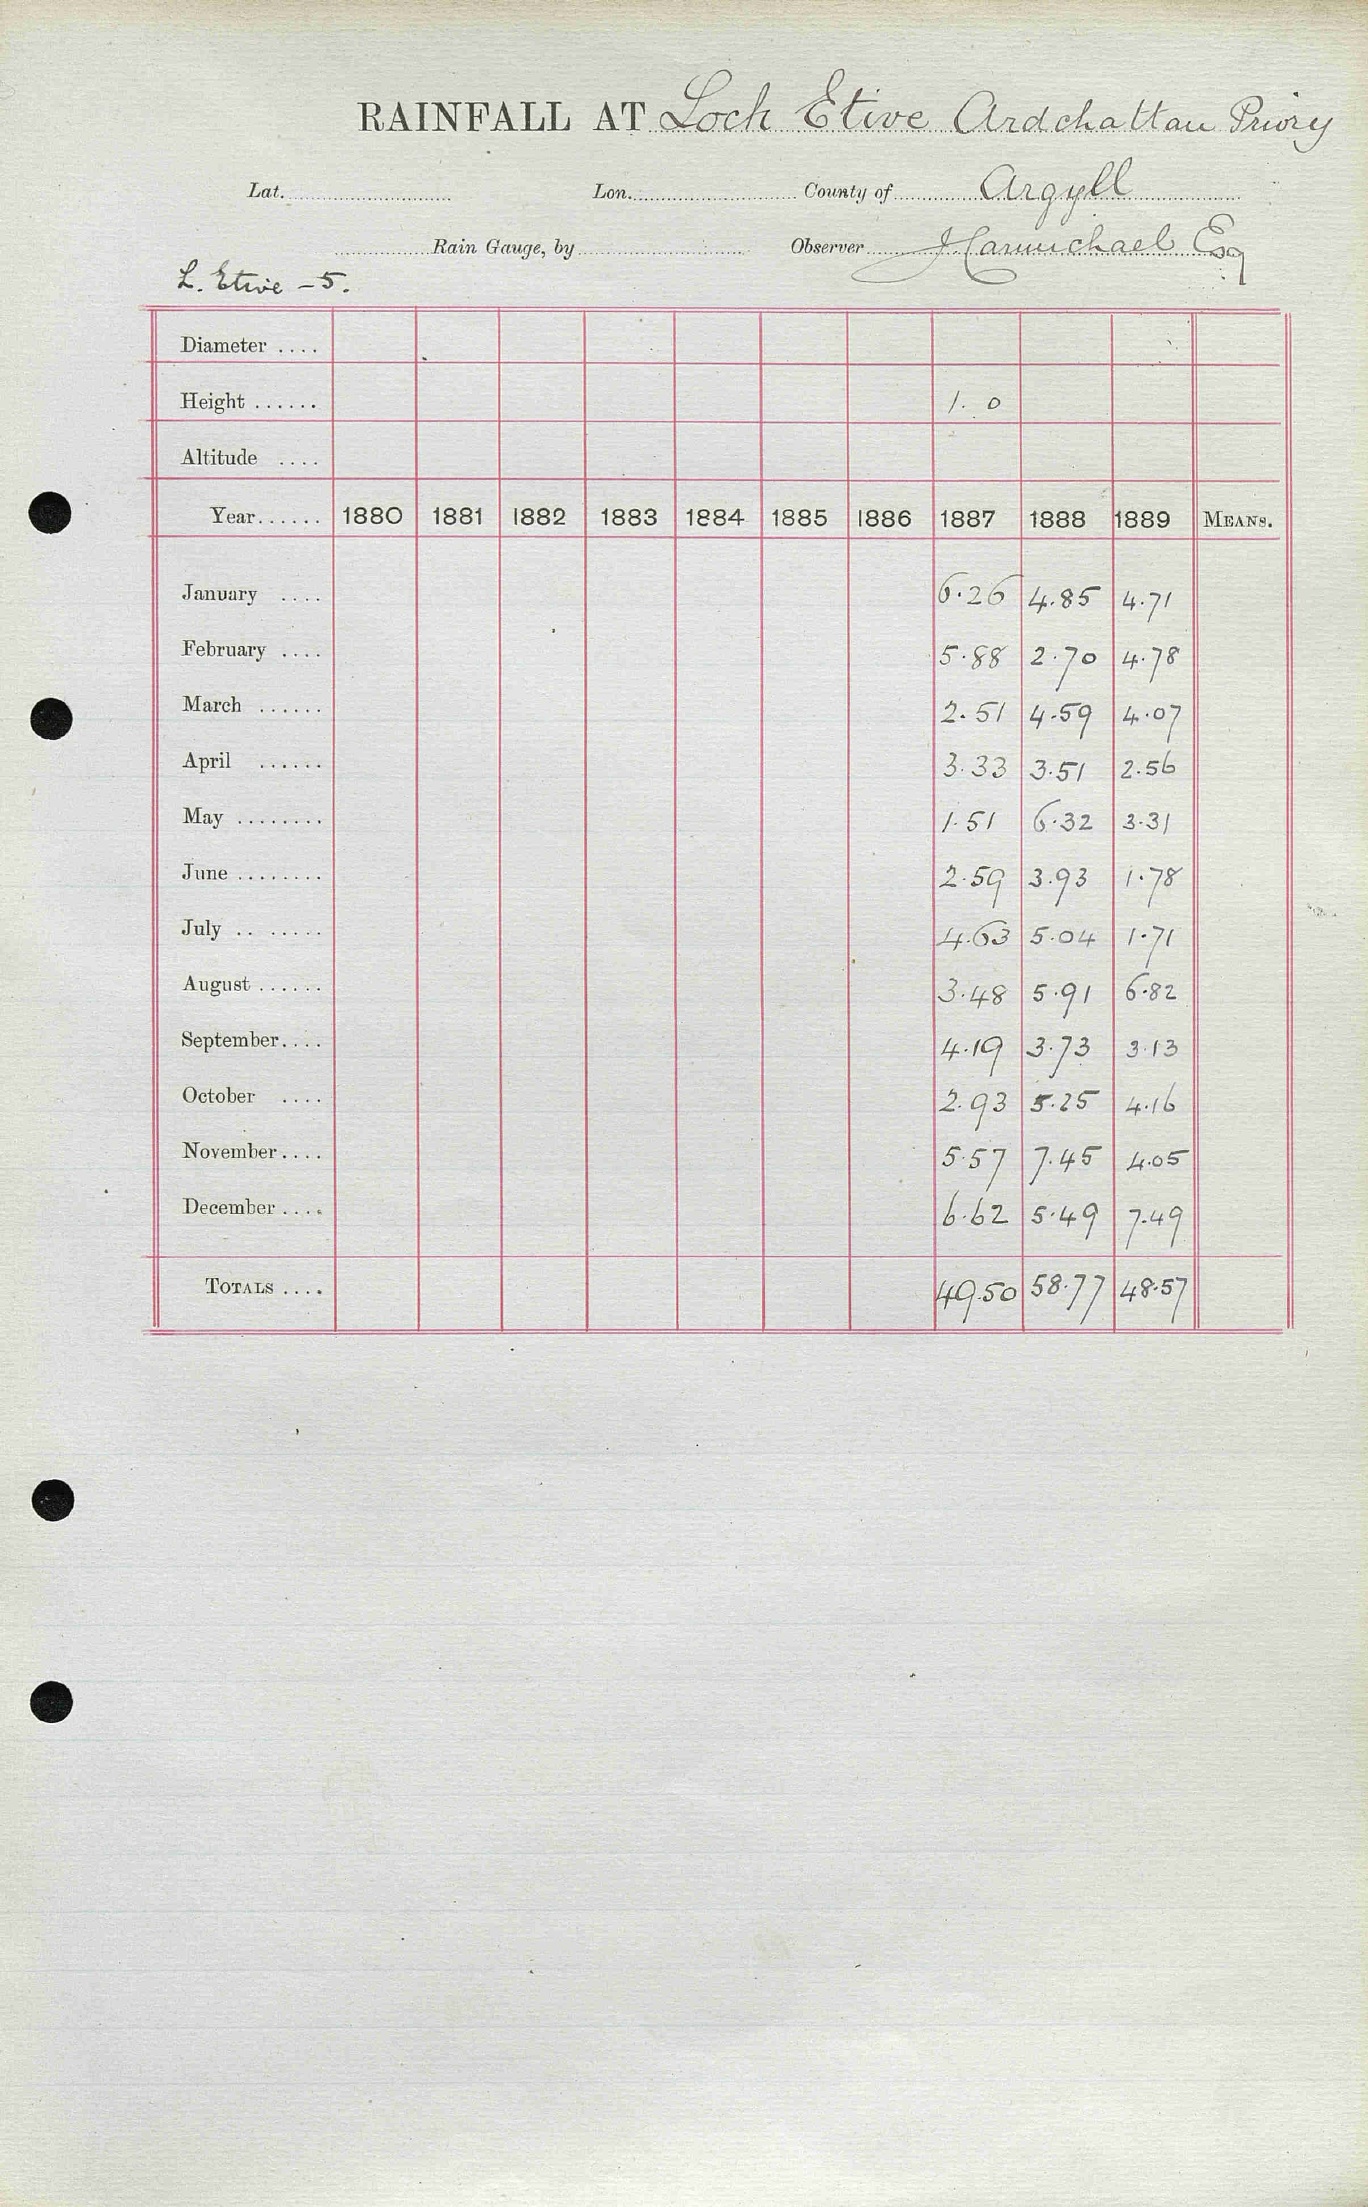 RAINFALL AT Loch Etive Ardchattan Priory
Lat. Lon. County of Argyll
Rain Gauge, by Observer J Carmichael Esq
L. Etive - 5.
Diameter ....
Height ...... 1. 0
Altitude ....
Year...... 1880 1881 1882 1883 1884 1885 1886 1887 1888 1889 MEANS.
January .... 6.26 4.85 4.71
February .... 5.88 2.70 4.78
March ...... 2.51 4.59 4.07
April ...... 3.33 3.51 2.56
May ........ 1.51 6.32 3.31
June ........ 2.59 3.93 1.78
July .. ...... 4.63 5.04 1.71
August ...... 3.48 5.91 6.82
September.... 4.19 3.73 3.13
October .... 2.93 5.25 4.16
November.... 5.57 7.45 4.05
December .... 6.62 5.49 7.49
TOTALS .... 49.50 58.77 48.57